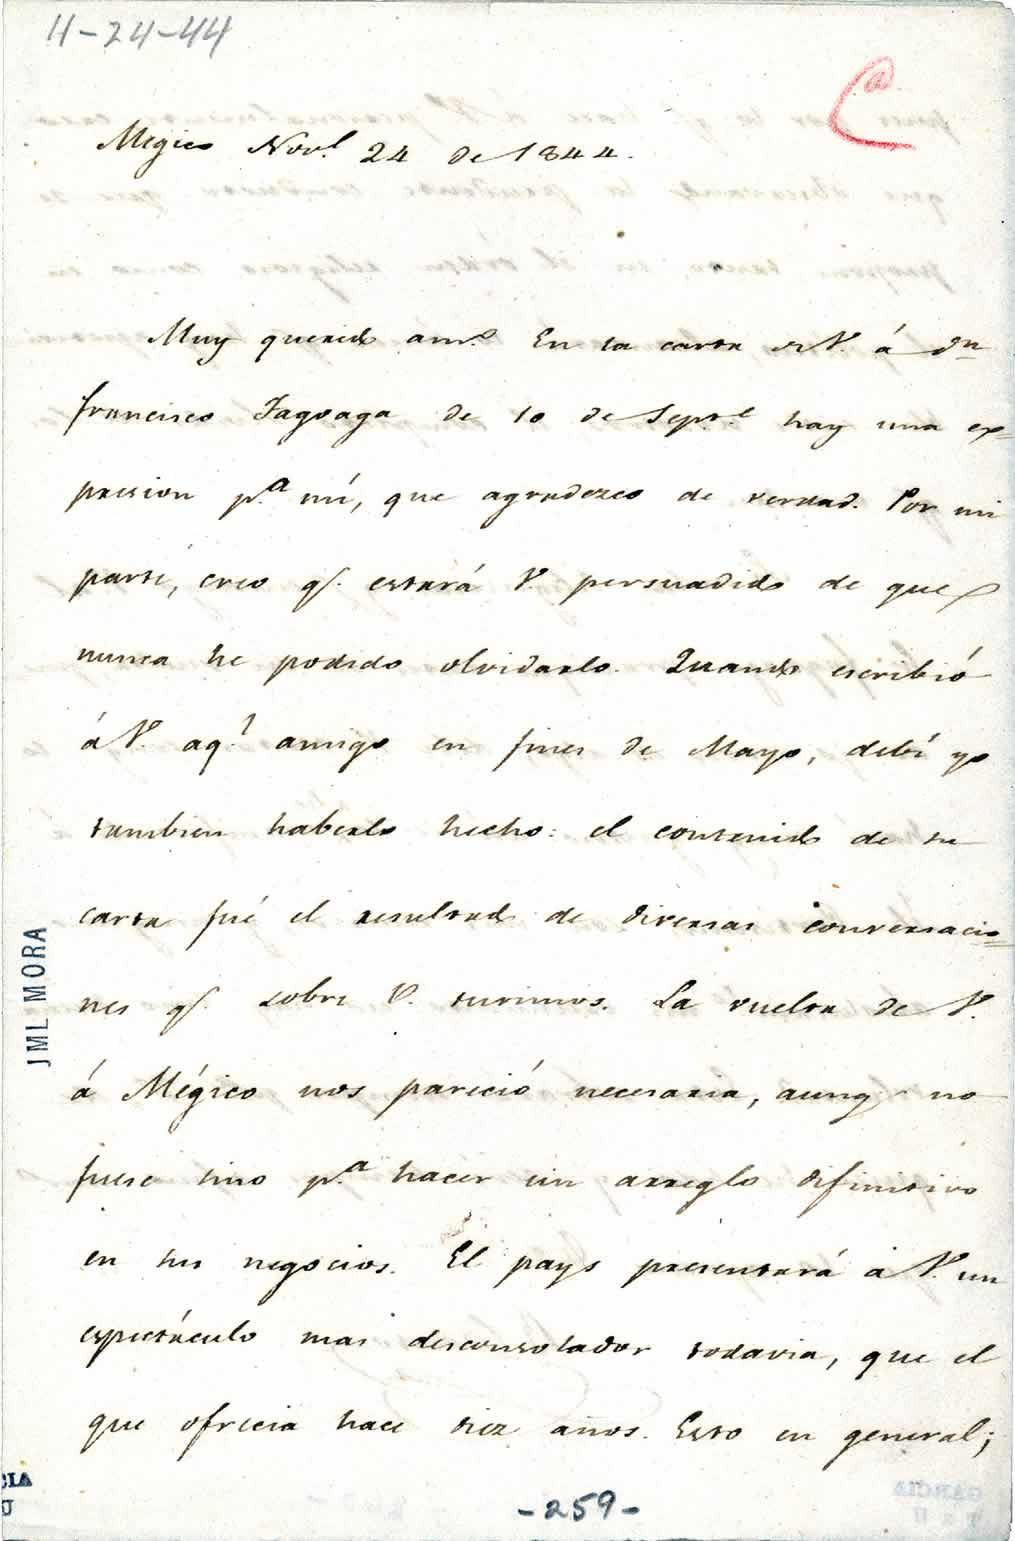 11-24-44
Ca
Megico Nov.e 24 de 1844.
Muy querido am.o En la carta de V. á dn
Francisco Fagoaga de 10 de Sept.e hay una ex-
presion p.a mí, que agradezco de verdad. Por mi
parte, creo q.e estará V. persuadido de que
nunca he podido olvidarlo. Quando escribió
á V. aq.l amigo en fines de Mayo, debí yo
tambien haberlo hecho: el contenido de su
carta fué el resultado de diversas conversacio=
nes q.e sobre V. tuvimos. La vuelta de V.
á Mégico nos pareció necesaria, aunq no
fuese sino p.a hacer un arreglo difinitivo
en sus negocios. El pays presentará á V. un
espectáculo mas desconsolador todavia, que el
que ofrecia hace diez años. Esto en general;
JML MORA
CIA
U
-259-
GARCIA